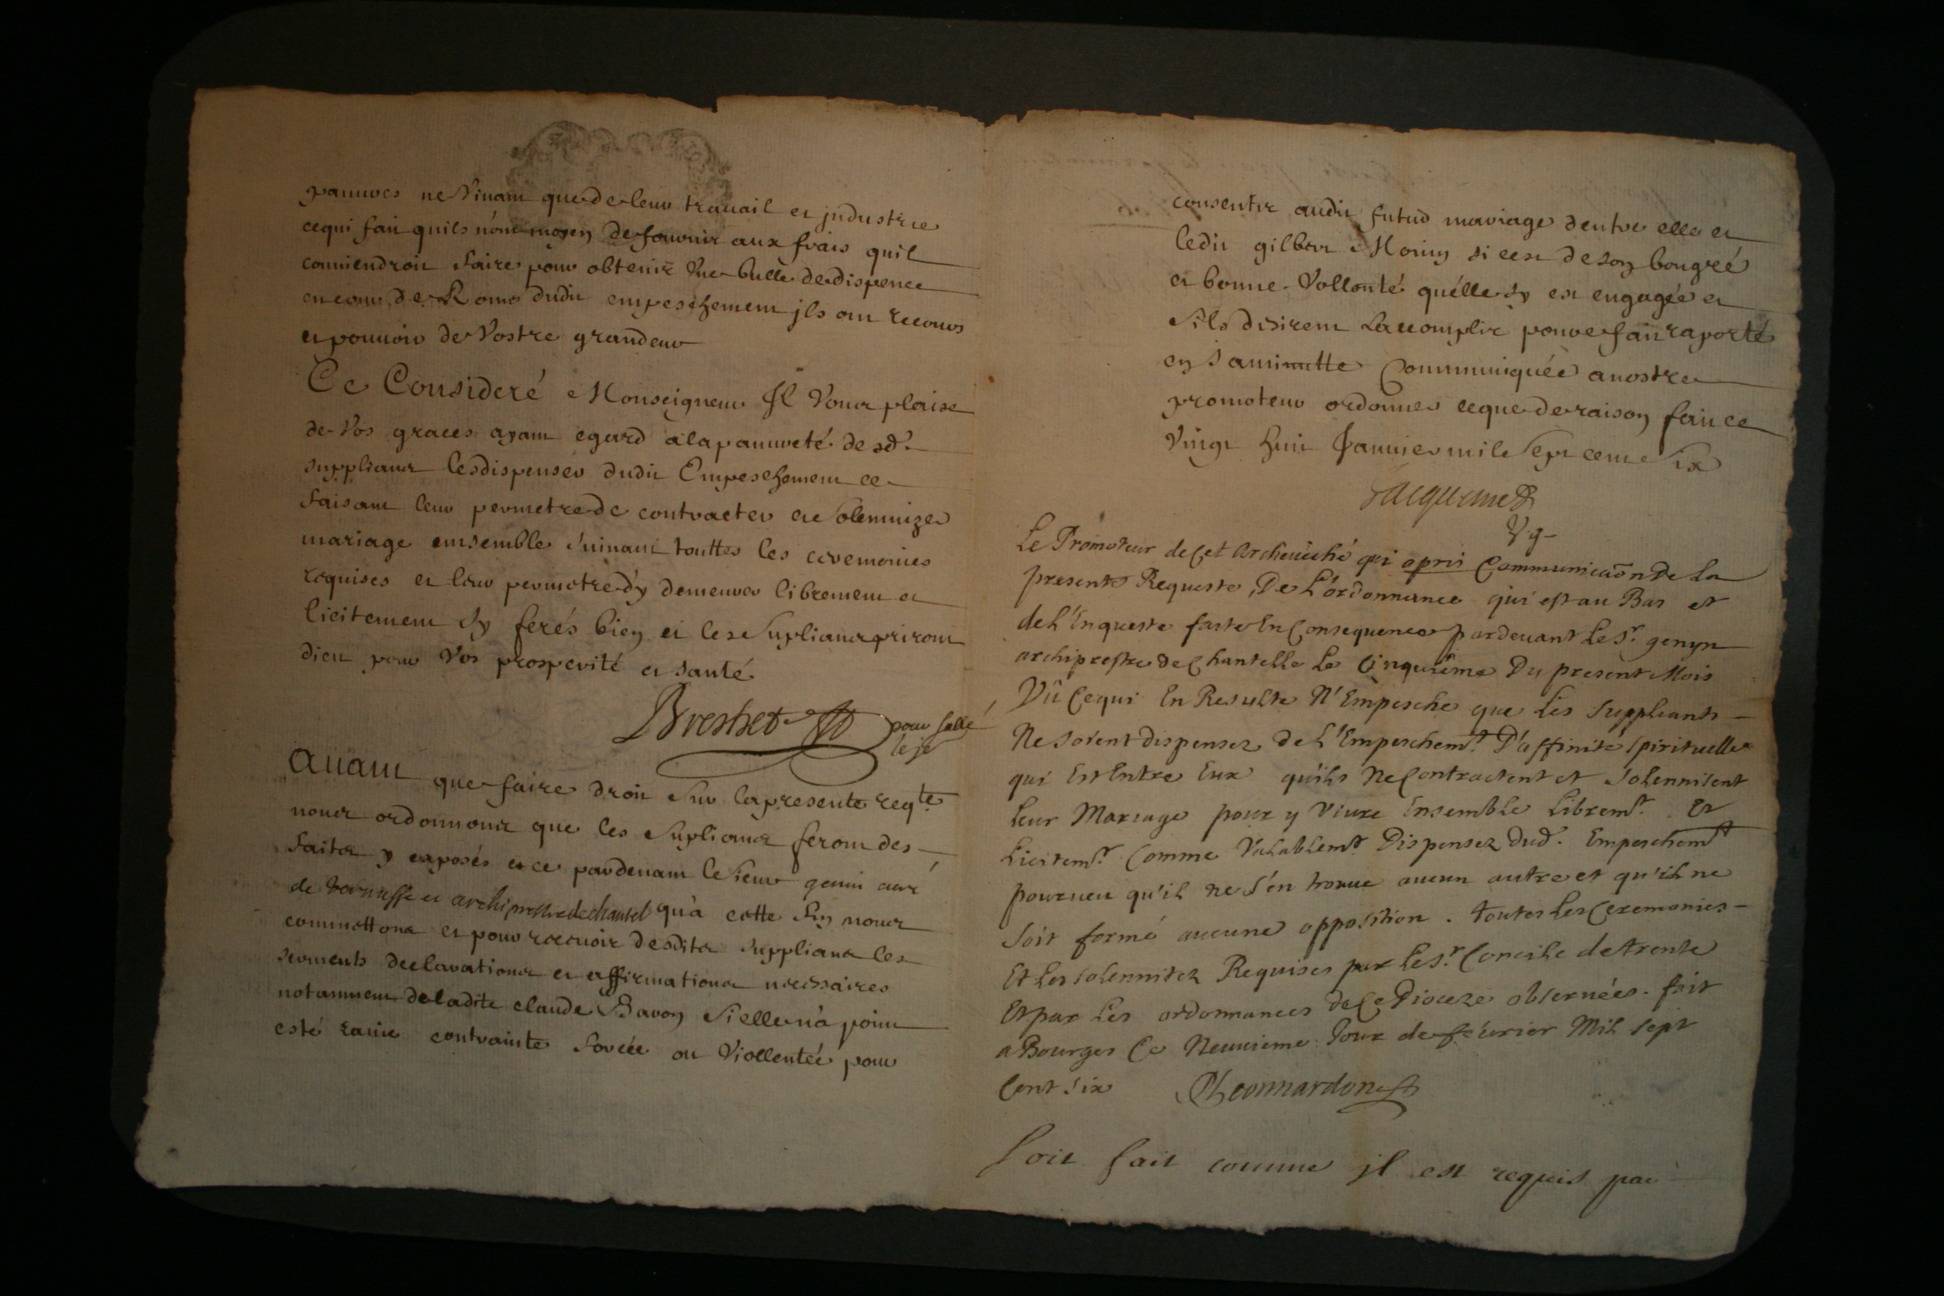 pauures ne Viuant que de leur trauail et jndustrie
ce qui fait quils n'ont moyen de fournir aux frais quil
conuiendroit faire pour obtenir Vne bulle de dispence
en cour de Rome dudit empeschement jls ont recours
et pouuoir de Vostre grandeur
Ce Consideré Monseigneur Il Vous plaise
de Vos graces ayant egard a la pauureté desd.
suppliants les dispenser dudit Empeschement ce
faisant leur permetre de contracter et solemnizer
mariage ensemble suiuant touttes les ceremonies
requises et leur permetre d'y demeurer librement et
licitement sy ferés bien et les supliants priront
dieu pour Vos prosperité et santé
Breshet
pour
Auant que faire droit sur la presente reqte
nous ordonnons que les suplians feront des
faits y exposés et ce pardeuant le sieur genin curé
de vernusse et archiprestre de chantel qu'a cette fin nous
commettons et pour receuoir desdits supplians les
serments declarations et affirmations necessaires
notamment de ladite claude Bavon si elle n'a point
esté rauie contrainte forcée ou Viollentée pour
consentir audit futur mariage d'entre elle et
ledit gilbert Morin si cest de son bongré
et bonne Vollonté quélle sy est engagée et
sils desirent l'accomplir pour ce fait raporté
en sa minutte Communiquée a nostre
promoteur ordonner ce que de raison fait ce
Vingt huit Januier mil sept cent six
Jacquemet
Vg
Le Promoteur de Cet Archeuêché qui a pris Communicaõn De La
presente Requeste, De L'ordonnance qui est au Bas et
de L'Enqueste faite En Consequence pardeuant Le Sr. genyn
archiprestre de Chantelle Le Cinquième Du present Mois
Vû Ce qui En Resulte N'Empesche que Les Suppliants
Ne soient dispensez de L'Empeschemt. D'affinité spirituelle
qui Est Entre Eux qu'ils Ne Contractent et Solennisent
Leur Mariage pour y Viure Ensemble Libremt. Et
Licitemt. Comme Valablemt. Dispensez Dud. Empeschemt
pourueu qu'il ne s'en trouue aucun autre et qu'il ne
soit formé aucune opposition. toutes Les Ceremonies
Et Les Solennitez Requises par Le St. Concile de trente
Et par Les ordonnances De Ce Dioceze obseruées. fait
a Bourges Ce Neuuieme Jour de féurier Mil Sept
Cent Six Leonnardon
Soit fait comme jl est requis par